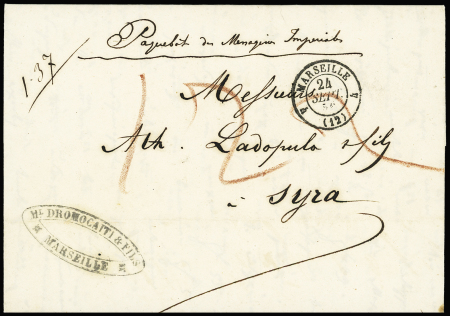 Paquebot des Messageries Imperiales
1.37
MARSEILLE
24
SEPT.
(12)
Messieurs
Ath. Ladopulo & fils
à Syra
DROMOCAITI & FILS
MARSEILLE